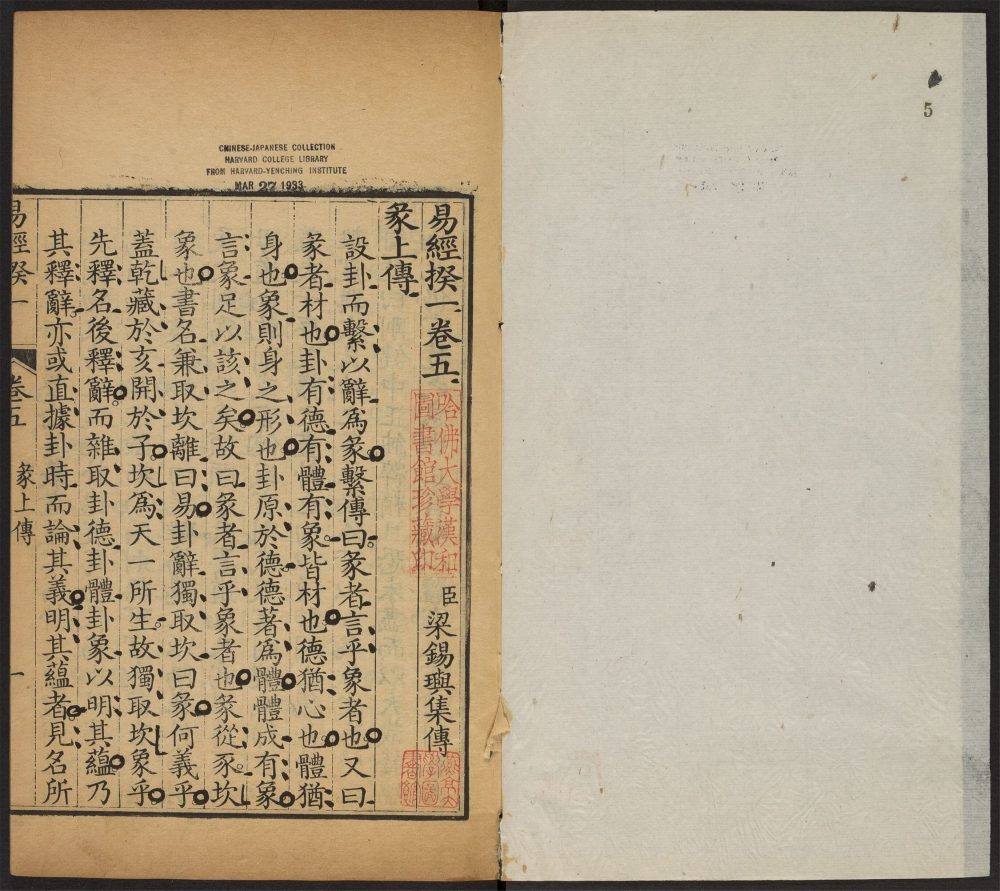 5
CHINESE-JAPANESE COLLECTION
HARVARD COLLEGE LIBRARY
FROM HARVARD-YENCHING INSTITUTE
MAR 27 1933
易經揆一卷五
臣梁錫璵集傳
哈佛大學漢和
圖書館珍藏印
彖上傳
設卦而繫以辭爲彖繫傳曰彖者言乎象者也又曰
彖者材也卦有德有體有象皆材也德猶心也體猶
身也象則身之形也卦原於德德著爲體體成有象
言象足以該之矣故曰彖者言乎象者也彖從豕坎
象也書名兼取坎離曰易卦辭獨取坎曰彖何義乎
蓋乾藏於亥開於子坎爲天一所生故獨取坎象乎
先釋名後釋辭而雜取卦德卦體卦象以明其蘊乃
其釋辭亦或直據卦時而論其義明其蘊者見名所
易經揆一
卷五
彖上傳
一